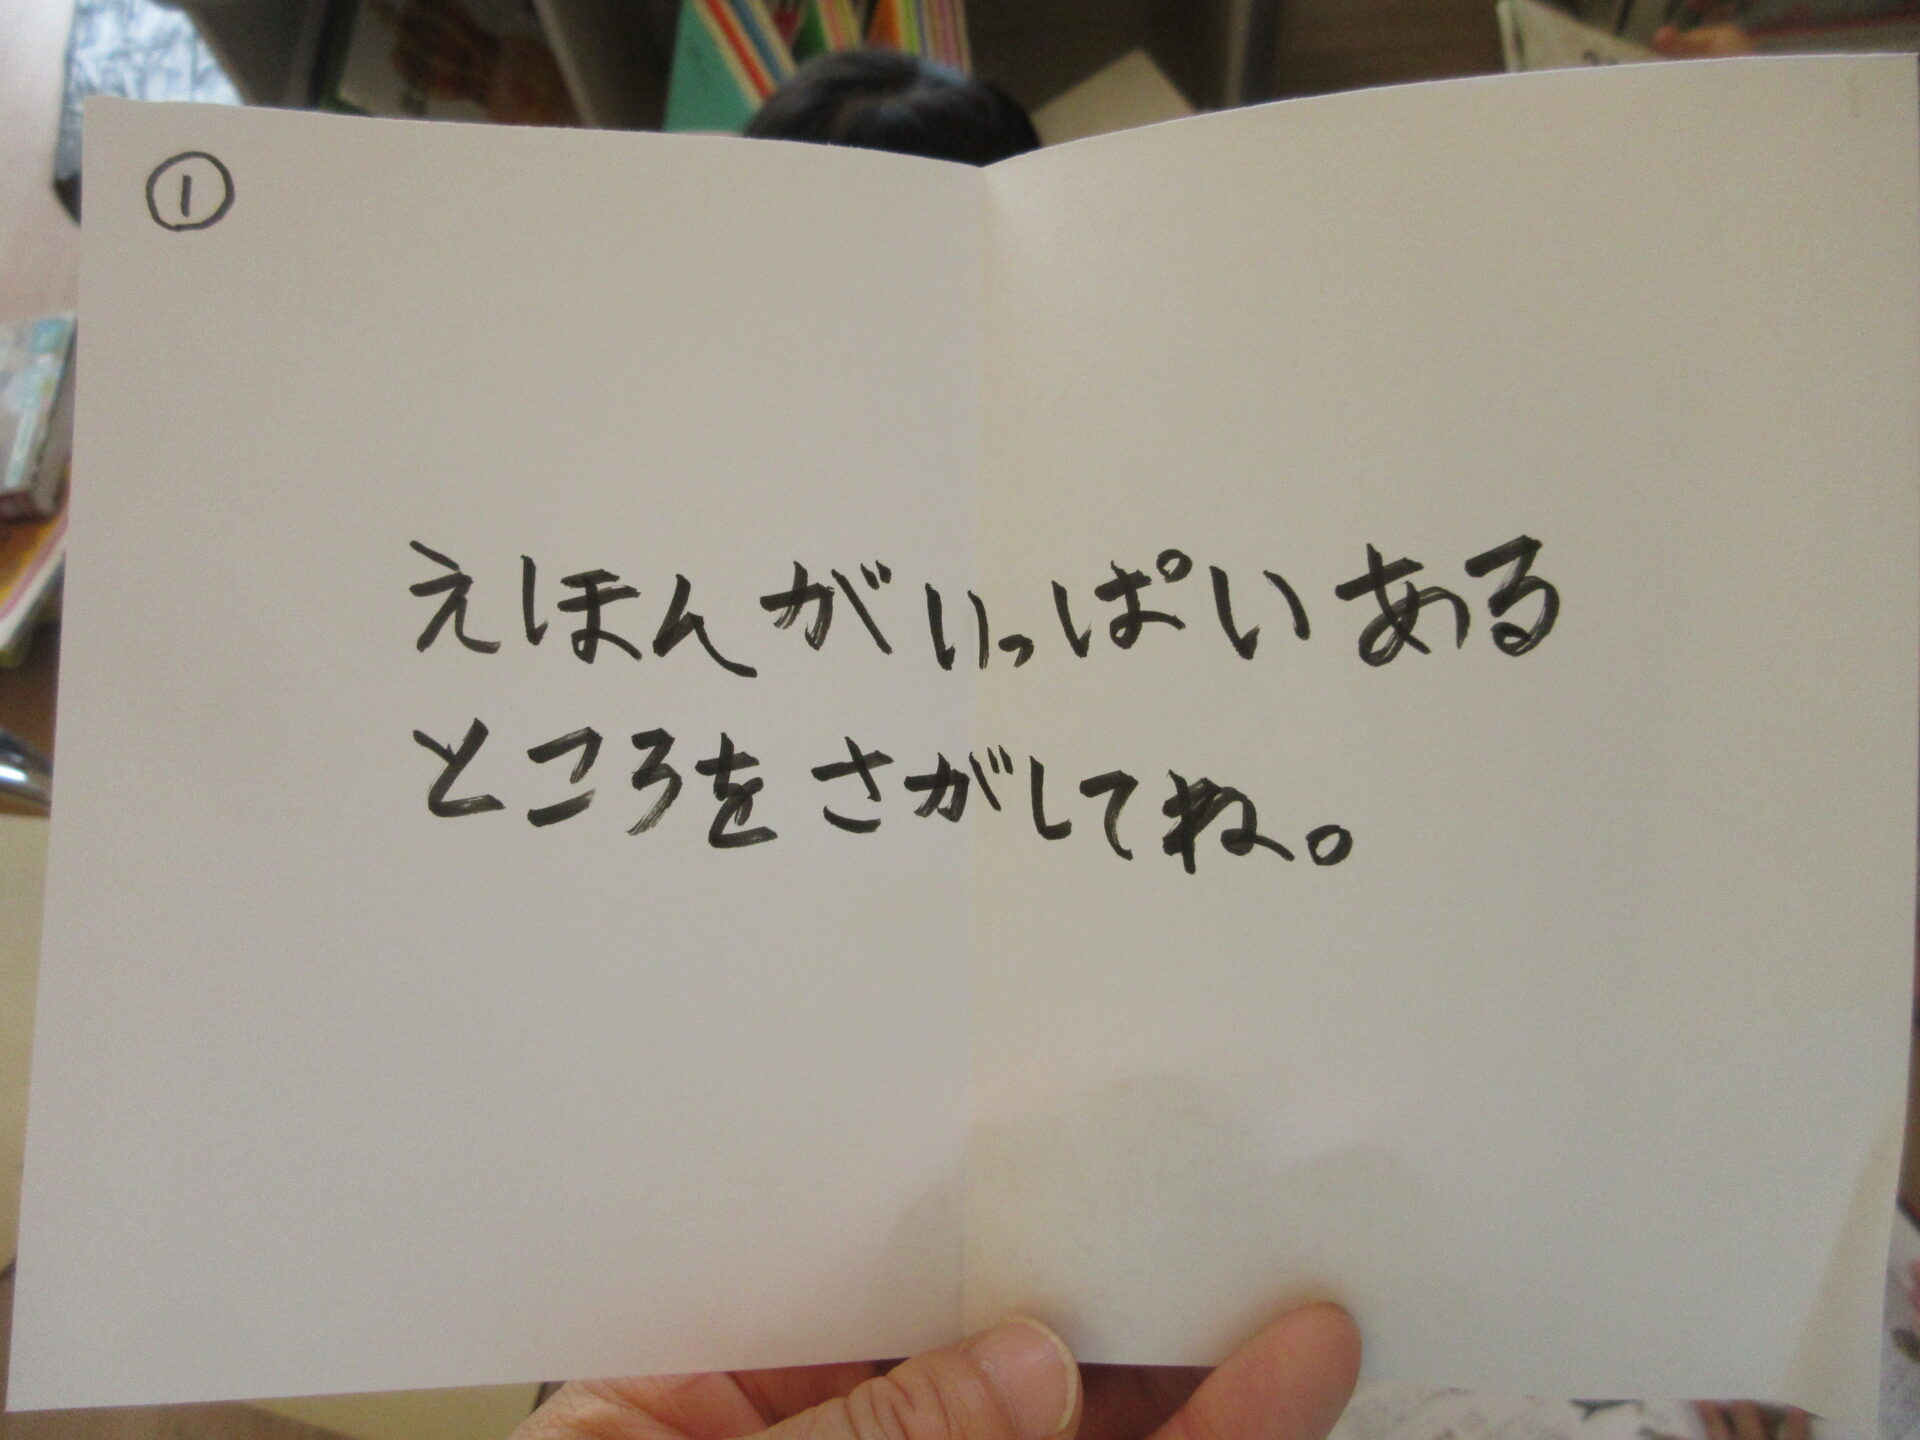 ①
えほんがいっぱいある
ところをさがしてね。